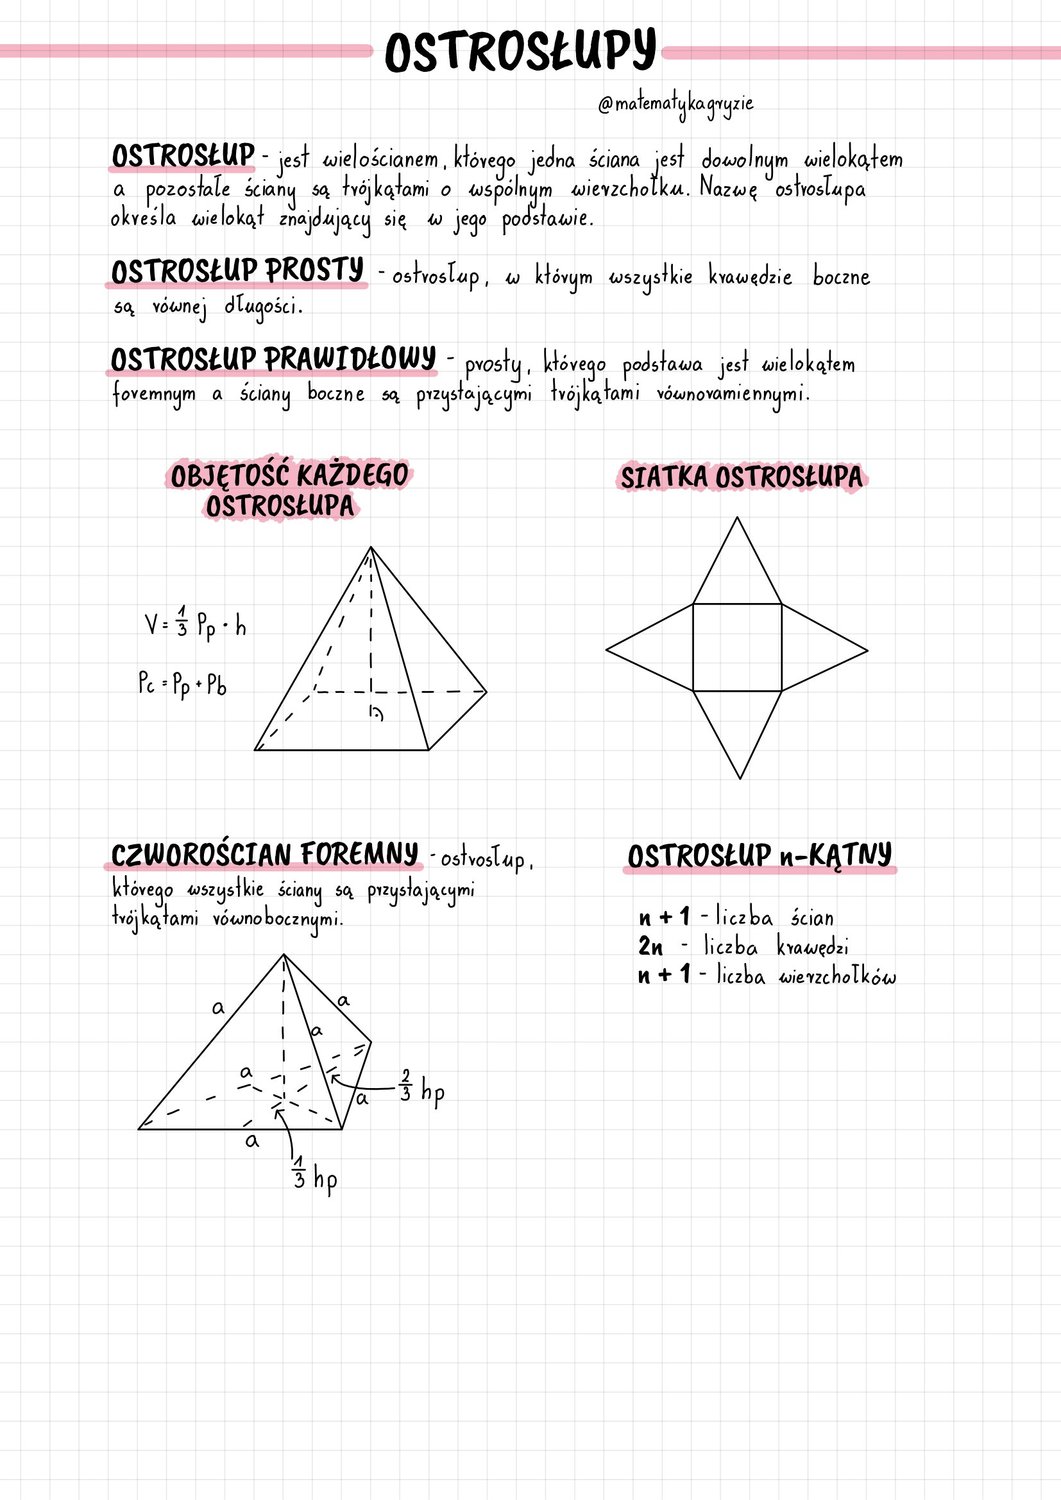 OSTROSŁUPY
@matematykagryzie
OSTROSŁUP - jest wielościanem, którego jedna ściana jest dowolnym wielokątem
a pozostałe ściany są trójkątami o wspólnym wierzchołku. Nazwę ostrosłupa
określa wielokąt znajdujący się w jego podstawie.
OSTROSŁUP PROSTY - ostrosłup, w którym wszystkie krawędzie boczne
są równej długości.
OSTROSŁUP PRAWIDŁOWY - prosty, którego podstawa jest wielokątem
foremnym a ściany boczne są przystającymi trójkątami równoramiennymi.
OBJĘTOŚĆ KAŻDEGO
OSTROSŁUPA
V = 1/3 Pp · h
Pc = Pp + Pb
SIATKA OSTROSŁUPA
CZWOROŚCIAN FOREMNY - ostrosłup,
którego wszystkie ściany są przystającymi
trójkątami równobocznymi.
a
a
a
a
a
a
2/3 hp
1/3 hp
OSTROSŁUP n-KĄTNY
n + 1 - liczba ścian
2n - liczba krawędzi
n + 1 - liczba wierzchołków